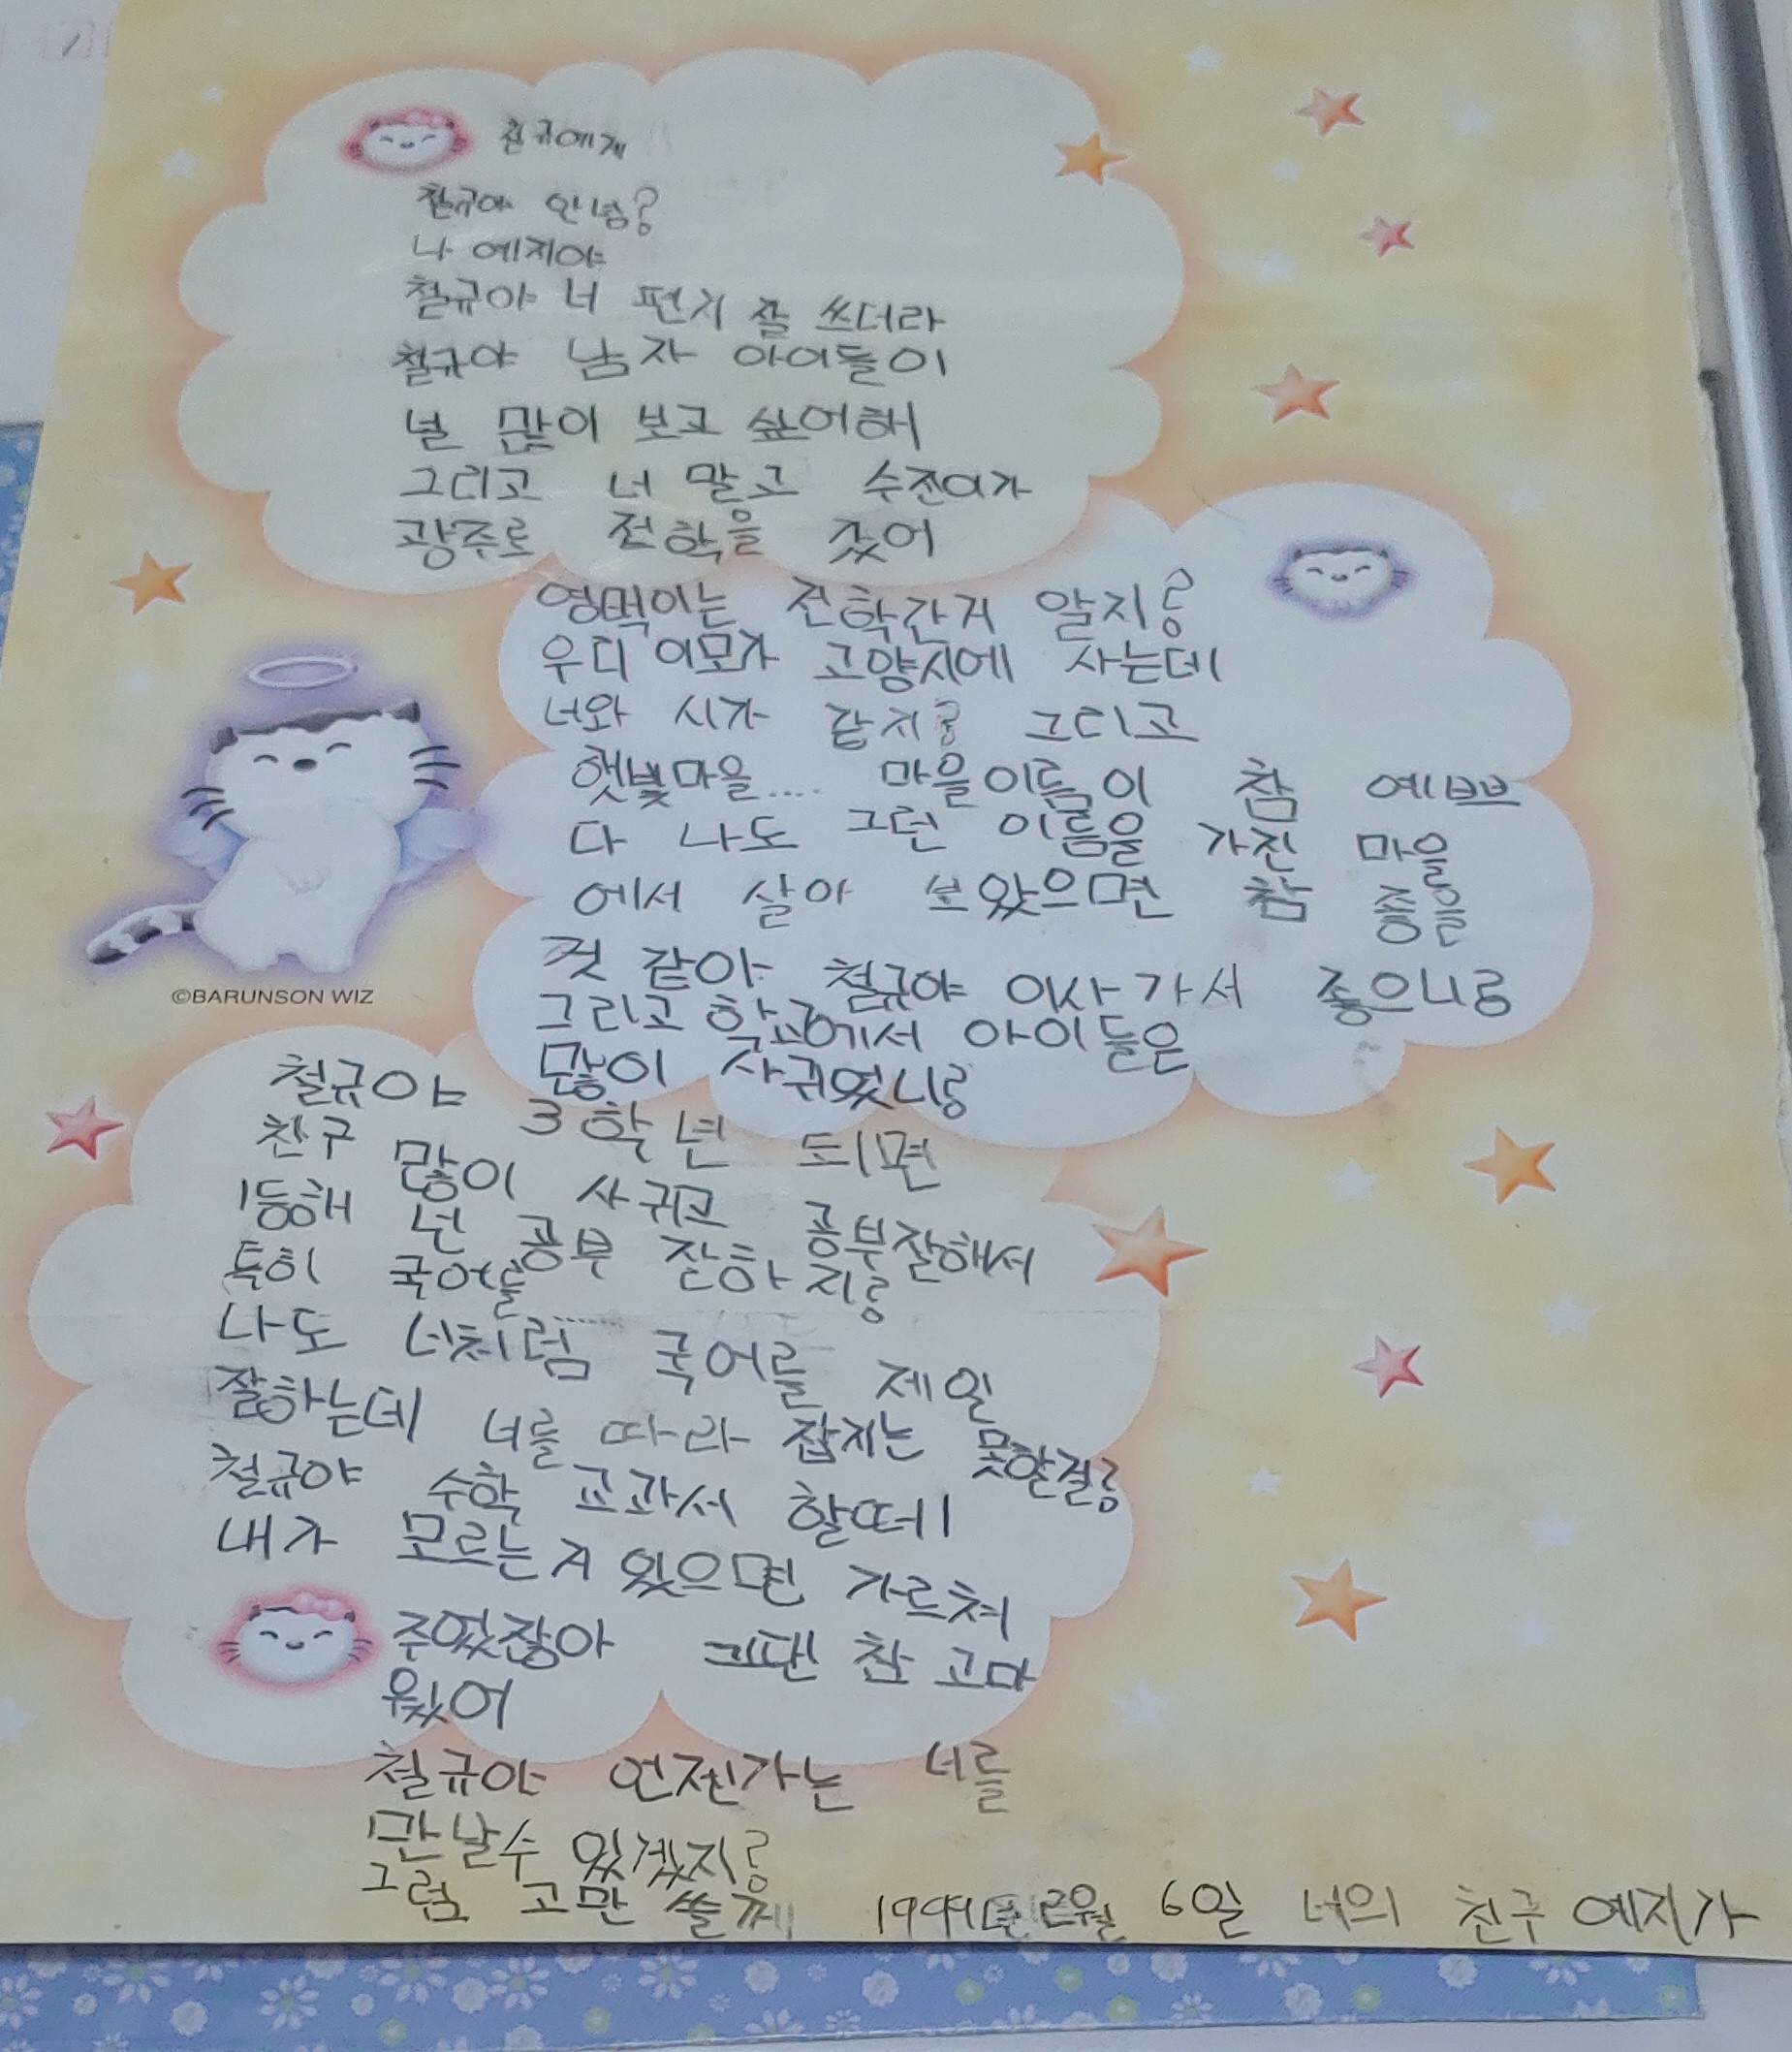 철규에게
철규야 안녕?
나 예지야
철규야 너 편지 잘 쓰더라
철규야 남자 아이들이
널 많이 보고 싶어해
그리고 너 말고 수진이가
광주로 전학을 갔어
영먹이는 전학간거 알지?
우리 이모가 고양시에 사는데
너와 시가 같지? 그리고
햇빛마을.... 마을이름이 참 예쁘
다 나도 그런 이름을 가진 마을
에서 살아 보았으면 참 좋을
것 같아 철규야 이사가서 좋으니?
그리고 학교에서 아이들은
많이 사귀었니?
철규야 3학년 되면
친구 많이 사귀고 공부잘해서
1등해 넌 공부 잘하지?
특히 국어를......
나도 너처럼 국어를 제일
잘하는데 너를 따라 잡지는 못할걸?
철규야 수학 교과서 할때
내가 모르는거 있으면 가르쳐
주었잖아 그땐 참 고마
웠어
철규야 언젠가는 너를
만날수 있겠지?
그럼 고만 쓸께
1999년 2월 6일 너의 친구 예지가
©BARUNSON WIZ